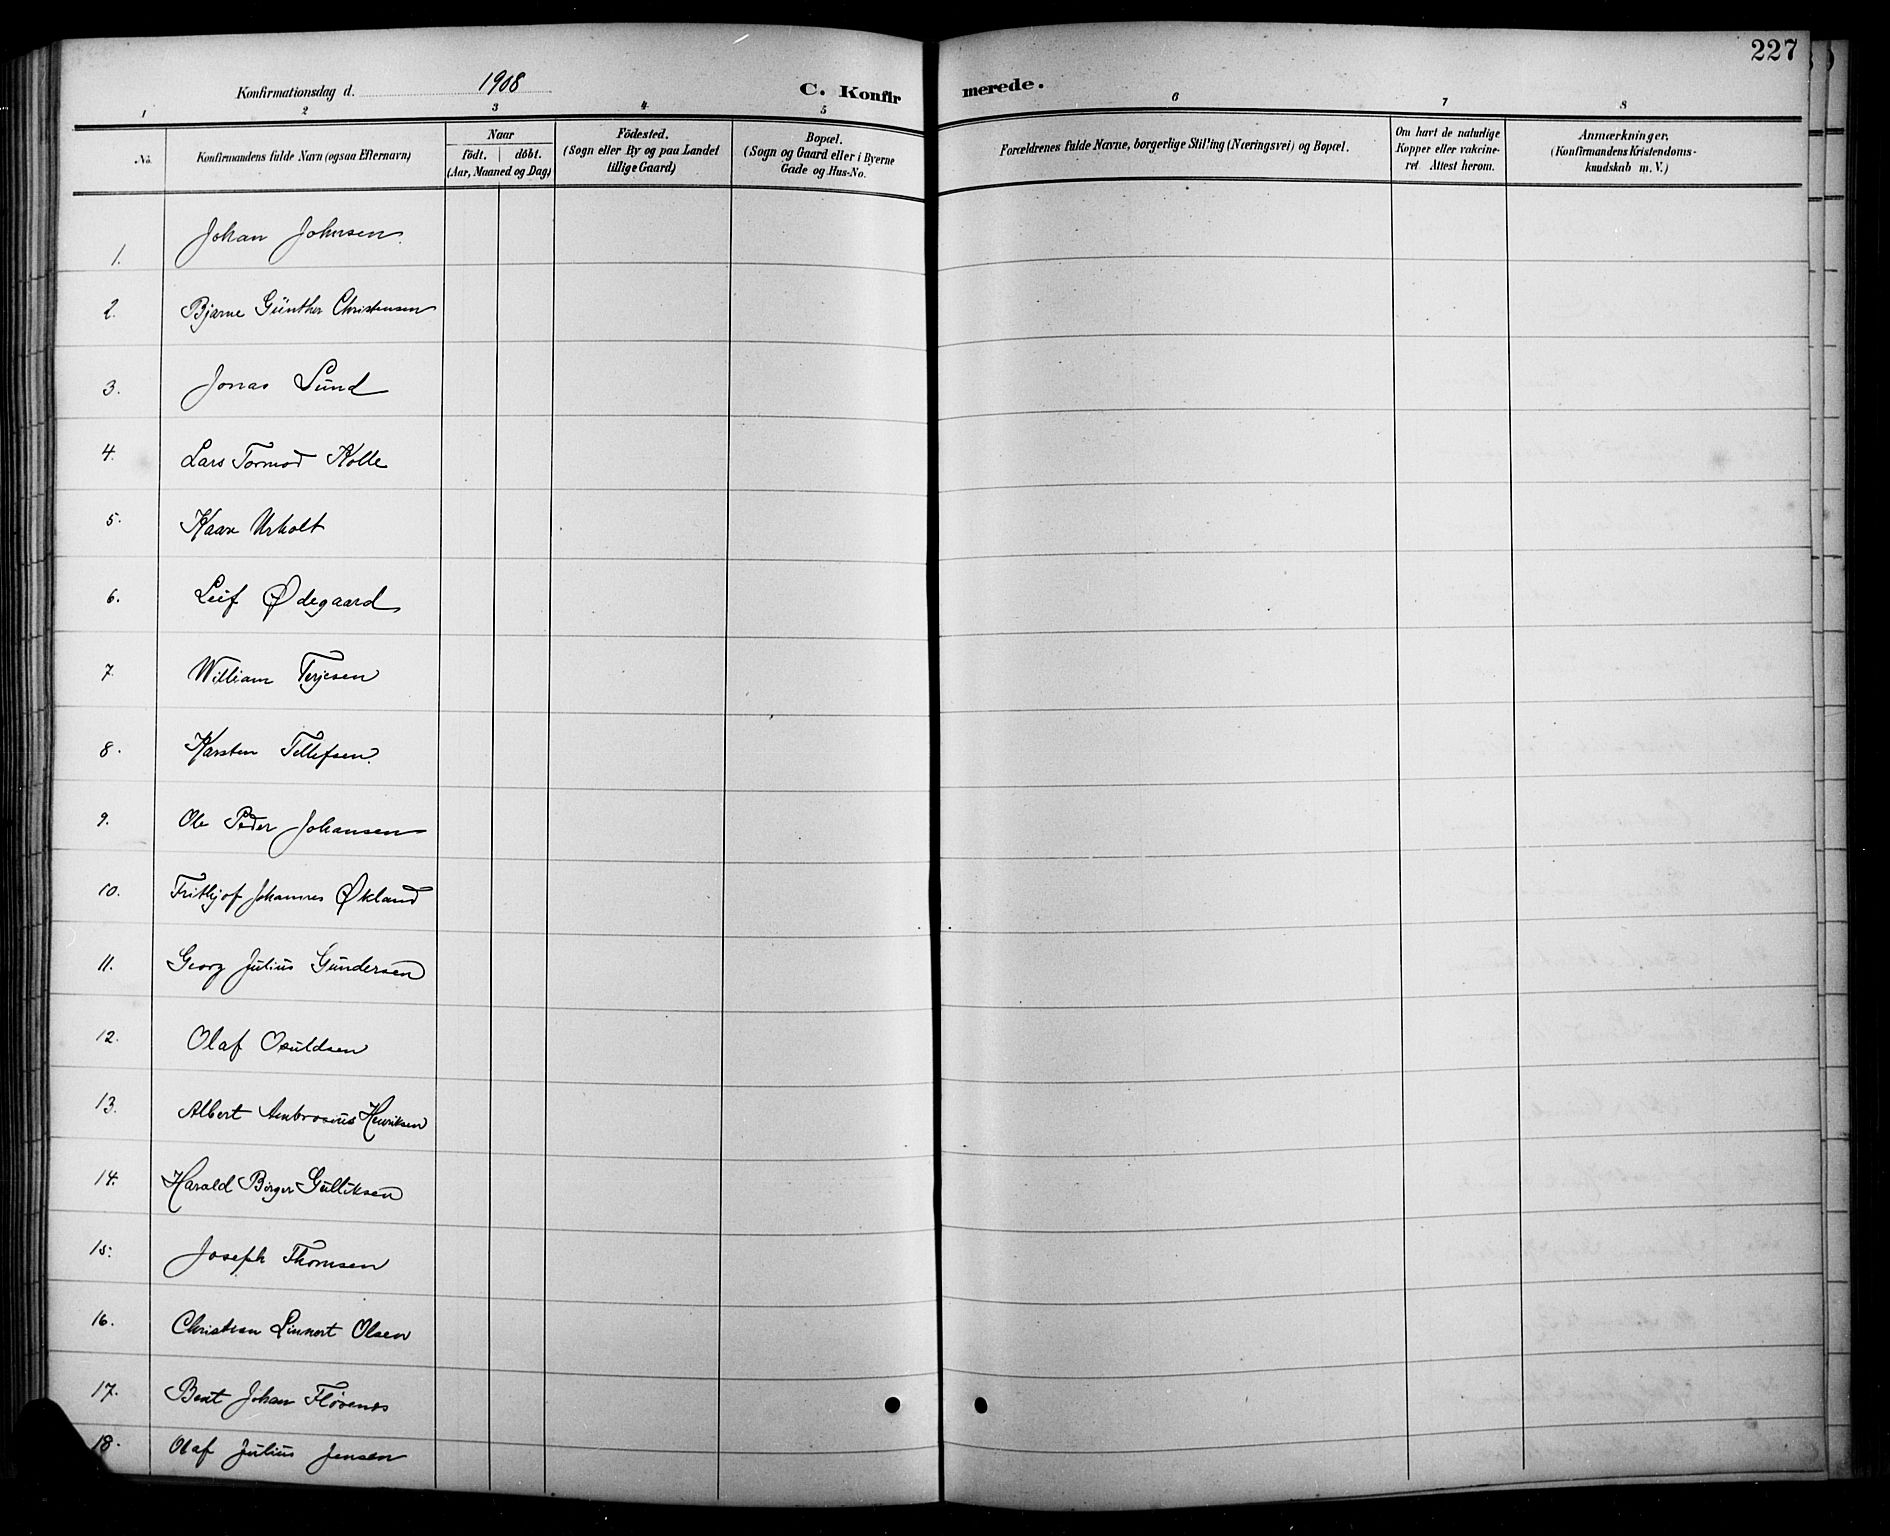 227
Konfirmationsdag d. 1908
C. Konfirmerede.
1 2 3 4 5 6 7 8
No.
Konfirmandens fulde Navn (ogsaa Efternavn)
Naar
födt. döbt.
(Aar, Maaned og Dag)
Födested.
(Sogn eller By og paa Landet
tillige Gaard)
Bopæl.
(Sogn og Gaard eller i Byerne
Gade og Hus-No.
Forældrenes fulde Navne, borgerlige Stilling (Næringsvei) og Bopæl.
Om havt de naturlige
Kopper eller vakcine-
ret Attest herom.
Anmærkninger.
(Konfirmandens Kristendoms-
kundskab m. V.)
1. Johan Johnsen
2. Bjarne Günther Christensen
3. Jonas Lund
4. Lars Tormod Kolle
5. Kaare Urholt
6. Leif Ødegaard
7. William Terjesen
8. Karsten Tellefsen
9. Ole Peder Johansen
10. Frithjof Johannes Økland
11. Georg Julius Gundersen
12. Olaf Osuldsen
13. Albert Ambrosius Henriksen
14. Harald Birger Gulliksen
15. Joseph Thomsen
16. Christian Linnert Olsen
17. Bent Johan Fløvenes
18. Olaf Julius Jensen